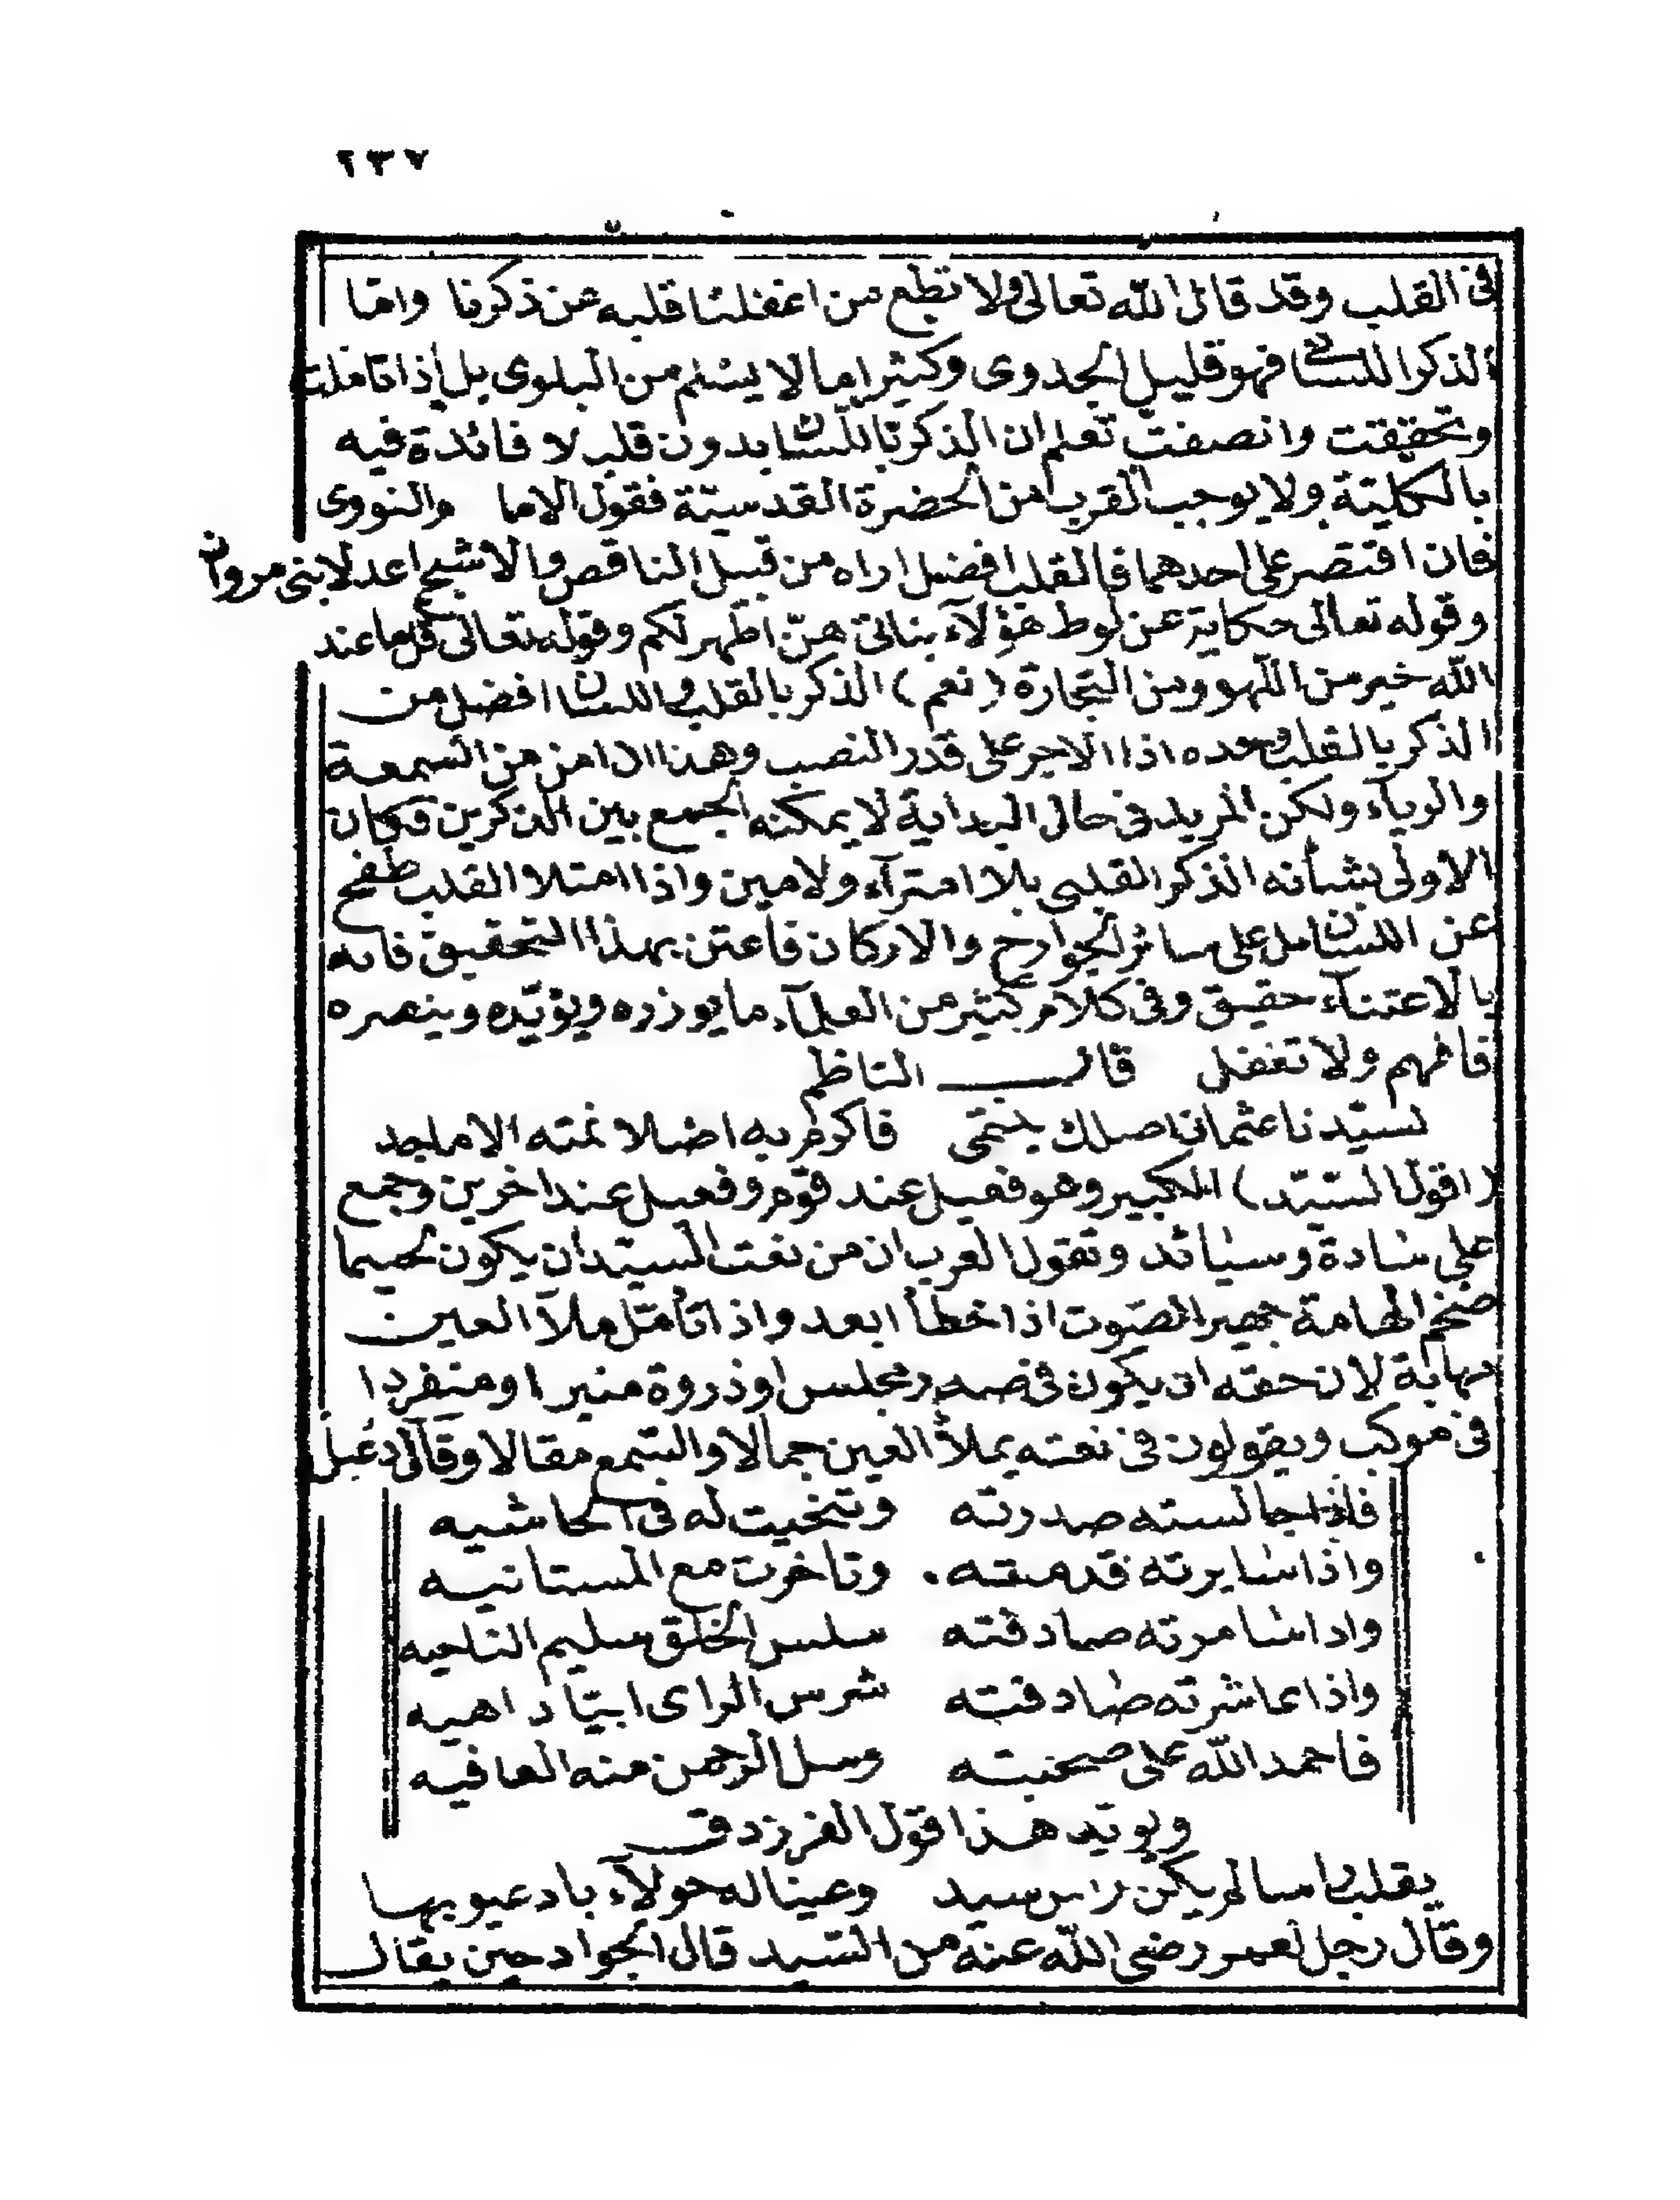 ٢٣٧
فى القلب وقد قال الله تعالى ولا تطع من اغفلنا قلبه عن ذكرنا واما
الذكر اللسانى فهو قليل الجدوى وكثيرا ما لا يسلم من البلوى بل إذا تاملت
وتحققت وانصفت تعلم ان الذكر باللسان بدون قلب لا فائدة فيه
بالكلية ولا يوجب القرب من الحضرة القدسية فقول الاما م النووى
فان اقتصر على احدهما فالقلب افضل اراه من قبيل الناقص والاشج اعدلا بنى مروان
وقوله تعالى حكاية عن لوط هؤلآء بناتى هنّ اطهر لكم وقوله تعالى قل ما عند
الله خير من اللهو ومن التجارة (نعم) الذكر بالقلب واللسان افضل من
الذكر بالقلب وحده اذا الاجر على قدر النصب وهذا اذا امن من السمعة
والريآء ولكن المريد فى حال البداية لا يمكنه الجمع بين الذكرين فكان
الاولى بشأنه الذكر القلبى بلا امترآء ولا مين واذا امتلا القلب طفح
عن اللسان بل على سائر الجوارح والاركان فاعتن بهذا التحقيق فانه
بالاعتنآء حقيق وفى كلام كثير من العلمآء ما يوزره ويؤيّده وينصره
فافهم ولا تغفل قال الناظم
لسيّدنا عثمان اصلك ينتمى فاكرم به اصلا نمته الاماجد
(اقول السيّد) الكبير وهو فعيل عند قوم وفعيل عند اخرين وجمع
على سادة وسيائد وتقول العرب ان من نعت السيّد ان يكون لحيما
ضخم الهامة جهير الصّوت اذا خطأ ابعد واذا تأمّل ملأ العين
مهابة لان حقه ان يكون فى صدر مجلس او ذروة منبر او منفردا
فى موكب ويقولون فى نعته يملأ العين جمالا والسّمع مقالا وقال دعبل
فاذا جالسته صدرته وتنحيت له فى الحاشيه
واذا سايرته قدمته وتاخرت مع المستانيه
واذا سامرته صادفته سلس الخلق سليم الناحيه
واذا عاشرته صادفته شرس الراى ابيّا داهيه
فاحمد الله على صحبته وسل الرحمن منه العافيه
ويويد هذا قول الفرزدق
يقلب راسا لم يكن راس سيد وعينا له حولآء باد عيوبها
وقال رجل لعمر رضى الله عنه من السّيد قال الجواد حين يقال